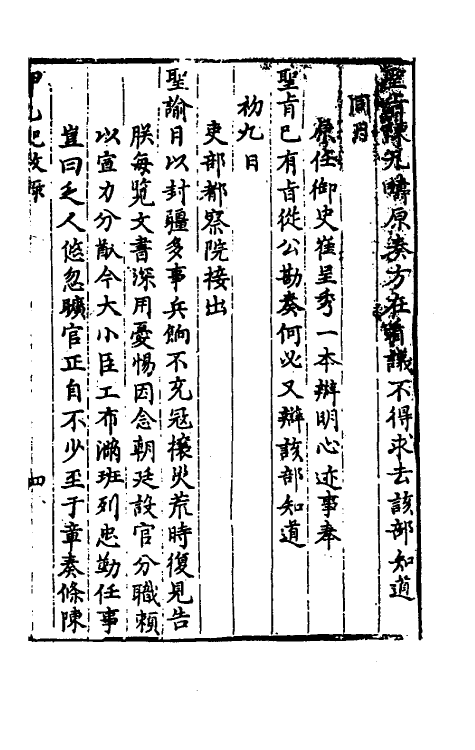 聖旨陳九疇原奏方在看議不得求去該部知道
同日
原任御史崔呈秀一本辯明心迹事奉
聖旨已有旨從公勘奏何必又辯該部知道
初九日
吏部都察院接出
聖諭目以封疆多事兵餉不充冦攘災荒時復見告
朕每覧文書深用憂惕因念朝廷設官分職賴
以宣力分猷今大小臣工布滿班列忠勤任事
豈曰乏人悠忽曠官正自不少至于章奏條陳
四